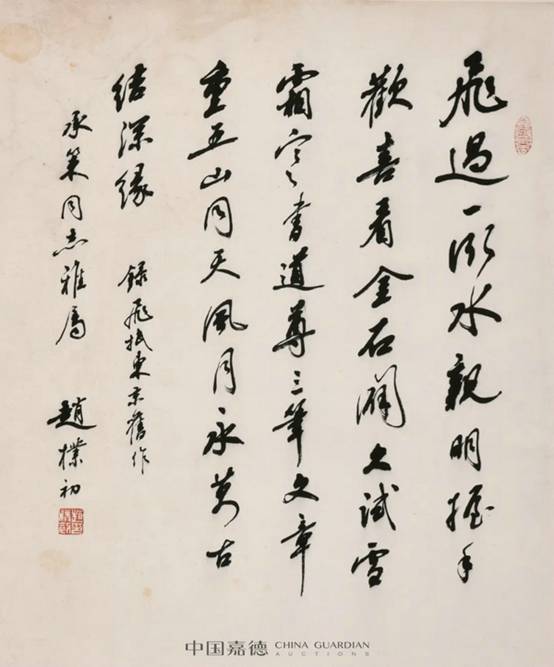 飛過一衣水親朋握手
歡喜看金石開久試雪
霜寒書道尊三筆文章
重五山同天風月永萬古
結深緣 録飛抵東京舊作
承策同志雅屬 趙樸初
中国嘉德 CHINA GUARDIAN
AUCTIONS